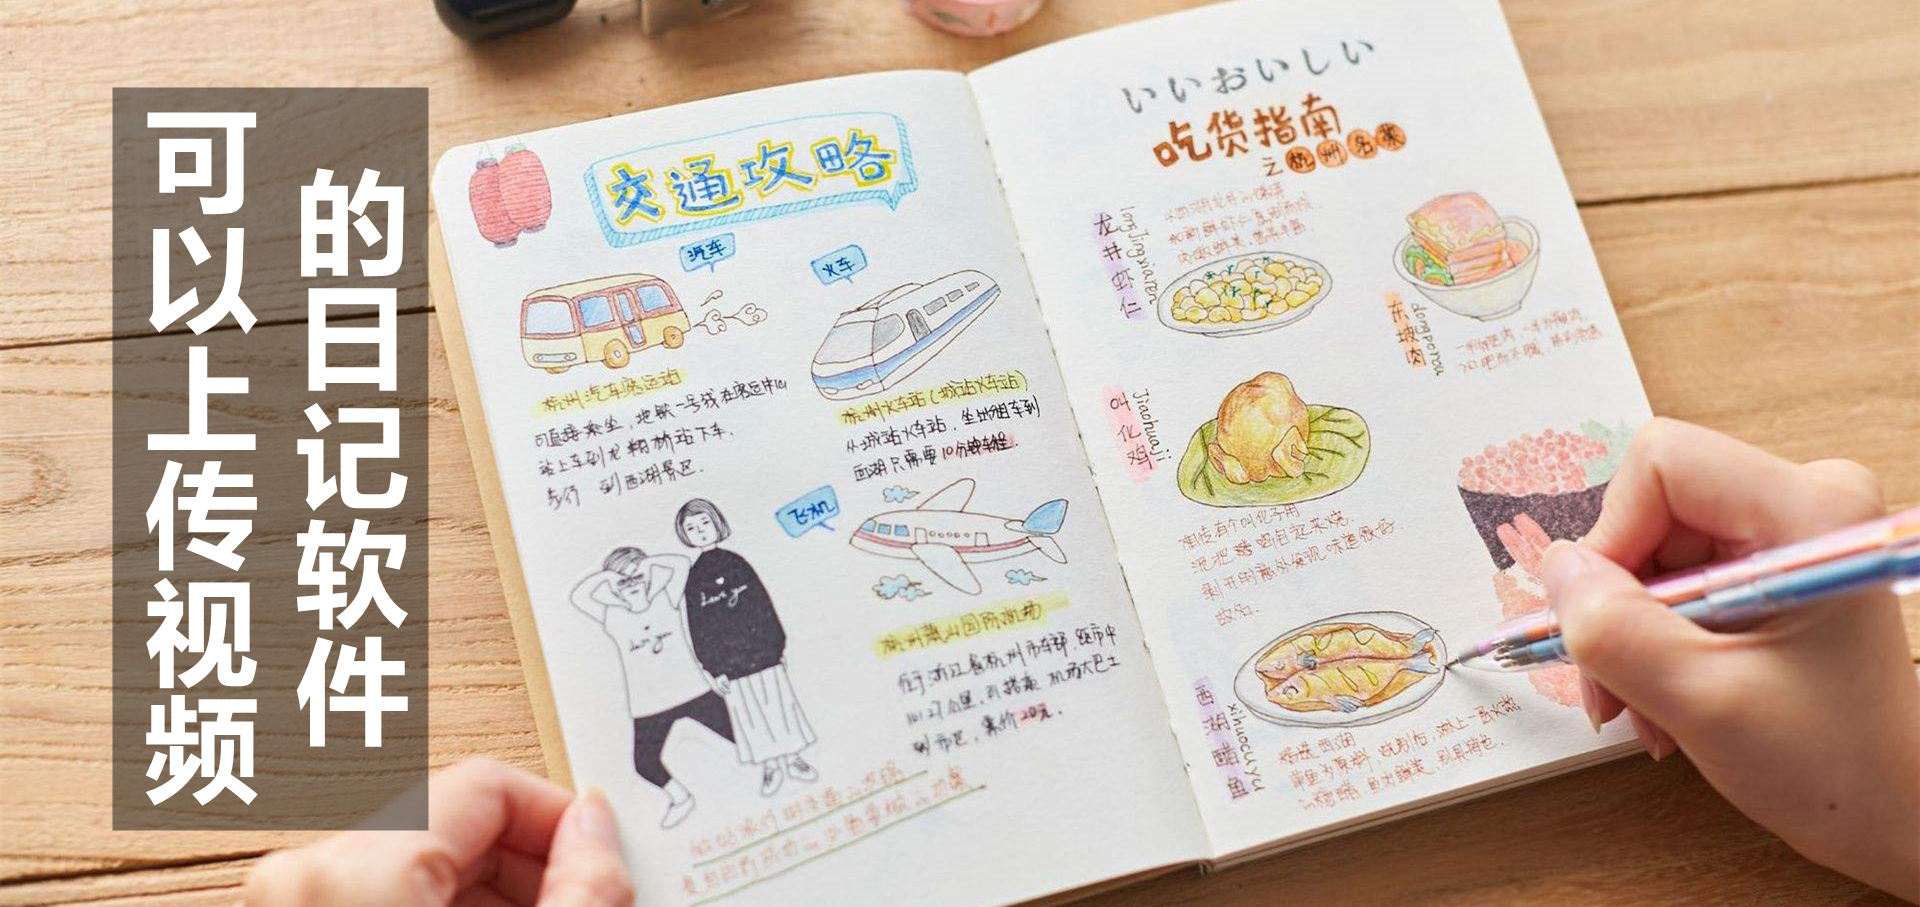 可以上传视频
的日记软件
交通攻略
汽车
杭州汽车客运站
可直接乘坐,地铁一号线在客运中心
站上车到龙翔桥站下车.
步行 到西湖景区.
火车
杭州火车站(城站火车站)
从城站火车站,坐出租车到
西湖只需要10分钟车程.
飞机
杭州萧山国际机场
位于浙江省杭州市东部 距市中
心27公里,可搭乘 机场大巴士
到市区,票价20元.
Love you
Love you
いいおいしい
吃货指南
之杭州名菜
龙井虾仁
longjingxiaren
东坡肉
dongporou
叫化鸡
Jiaohuaji
相传有个叫化子用
泥把鸡包起来烧.
剥开时意外发现味道很好.
故名.
西湖醋鱼
xihucuyu